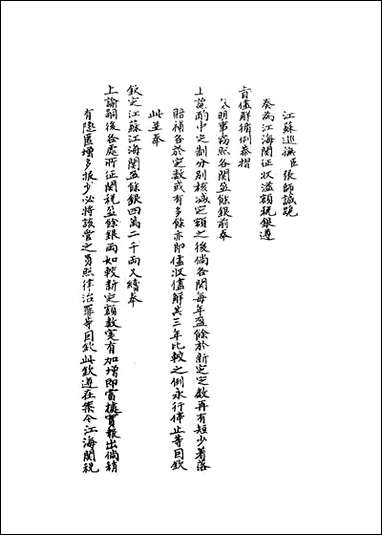 江蘇巡撫臣張師誠跪
奏為江海關征收溢額税銀遵
旨儘解循例恭摺
奏明事竊照各關盈餘銀前奉
上諭酌中定制分别核减定額之後倘各關每年盈餘於新定之數再有短少著落
賠補各於定數或有多餘亦即儘收儘解其三年比較之例永行停止等因欽
此並奉
欽定江蘇江海關盈餘銀四萬二千兩又續奉
上諭嗣後各處所征關税盈餘銀兩如較新定額數寔有加增即當據實報出倘稍
有隱匿增多報少必將該管之員照律治罪等因欽此欽遵在案今江海關税